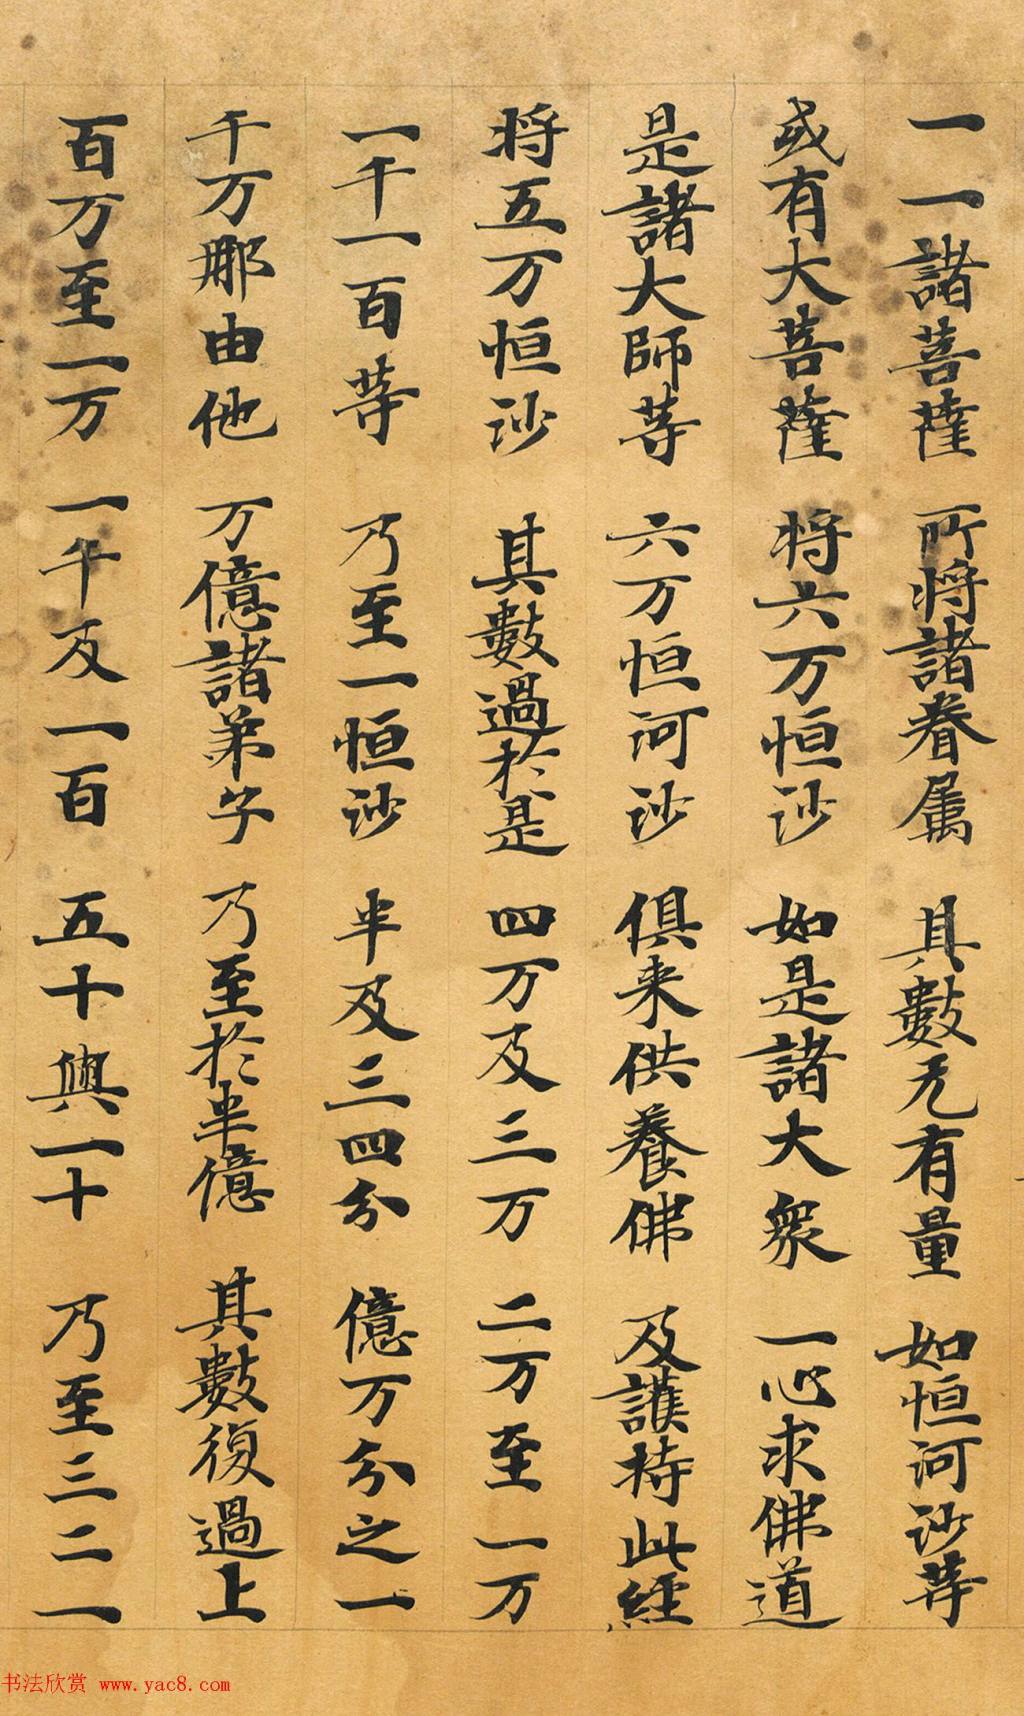 一一諸菩薩 所將諸眷属 其數无有量 如恒河沙等
或有大菩薩 将六万恒沙 如是諸大衆 一心求佛道
是諸大師等 六万恒河沙 俱来供養佛 及護持此經
将五万恒沙 其數過於是 四万及三万 二万至一万
一千一百等 乃至一恒沙 半及三四分 億万分之一
千万那由他 万億諸弟子 乃至於半億 其數復過上
百万至一万 一千及一百 五十與一十 乃至三二一
书法欣赏 www.yac8.com